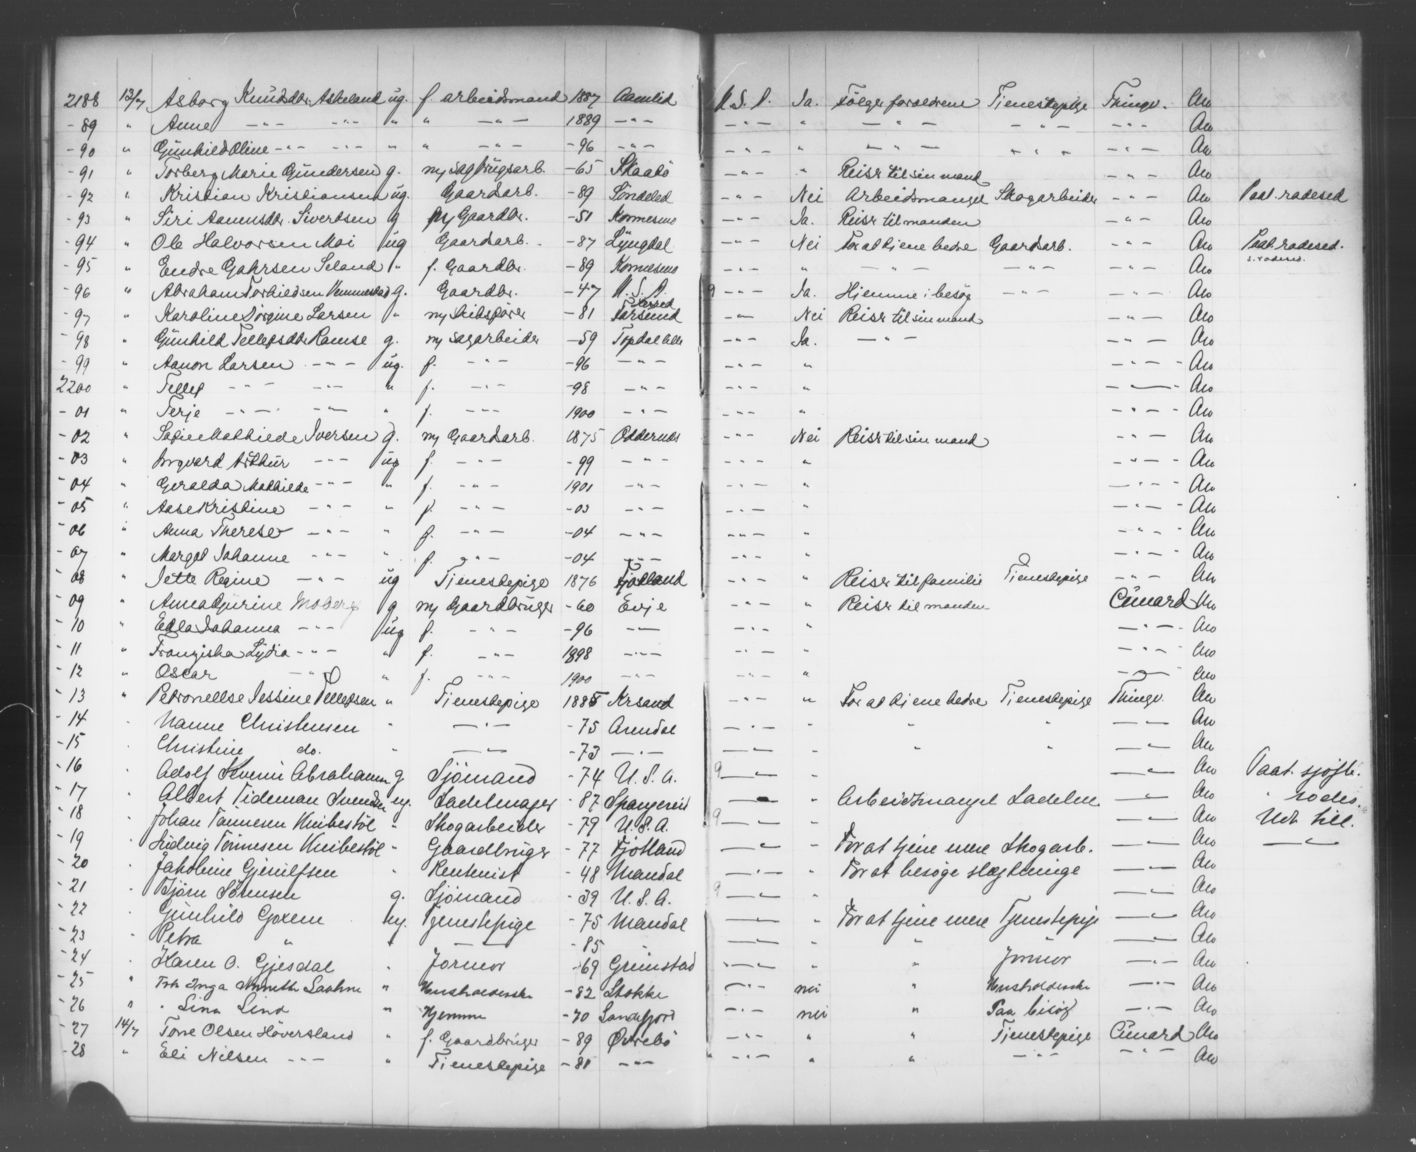 2188 12/7 Asborg Knudsdtr. Askeland ug. f arbeidsmand 1887 Aamlid U.S.A. Ja. Følger forældrene Tjenestepige Thingv. Ao
-89 " Anne -"- -"- " " -"- 1889 -"- -"- " -"- -"- -"- Ao
-90 " Gunhild Oline -"- -"- " " -"- -96 -"- -"- " -"- " " " -"- Ao
-91 " Torberg Marie Gundersen g. m/ Sagbrugsarb. -65 Skaatö -"- " Reiser til sin mand -"- Ao
-92 " Kristian Kristiansen ug. Gaardarb. -89 Söndeled -"- Nei Arbeidsmangel Skogarbeider -"- Ao Paat. radesed
-93 " Siri Aanensdtr. Sivertsen g m/ Gaardbr. -51 Kornesmo -"- Ja. Reiser til manden -"- Ao
-94 " Ole Halvorsen Moi ug Gaardarb. -87 Lyngdal -"- Nei For at tjene bedre Gaardsarb. -"- Ao Paat. radesed.
-95 " Endre Gahrsen Seland " f. Gaardbr. -89 Kornesmo -"- " -"- -"- -"- Ao
-96 " Abraham Torkildsen g. Gaardbr. -47 U.S.A. 9 -"- Ja. Hjemme i besög -"- -"- Ao
-97 " Karoline Sörine Larsen " m/ skibsförer -81 Farsund -"- Nei Reiser til sin mand -"- Ao
-98 " Gunhild Tellefsdtr Ramse g. m/ sagarbeider -59 -"- Ja. -"- -"- Ao
-99 " Aanon Larsen -"- ug. f. -"- -96 -"- -"- " -"- Ao
2200 " Tellef -"- -"- " f. -"- -98 -"- -"- " -"- Ao
-01 " Terje -"- -"- f. -"- 1900 -"- -"- " -"- Ao
-02 " Sofie Mathilde Iversen g. m/ Gaardarb. 1875 Oddernes -"- Nei Reiser til sin mand -"- Ao
-03 " Ingvard Arthur -"- ug f. -"- -99 -"- -"- " -"- Ao
-04 " Geralda Mathilde -"- " f. -"- 1901 -"- -"- " -"- Ao
-05 " Aase Kristine -"- " f. -"- -03 -"- -"- " -"- Ao
-06 " Anna Therese -"- " f. -"- -04 -"- -"- " -"- Ao
-07 " Margot Johanne -"- " f. -"- -04 -"- -"- " -"- Ao
-08 " Jette Regine -"- ug Tjenestepige 1876 Fjotland -"- " Reiser til familie Tjenestepige -"- Ao
-09 " Anna Gurine Moberg g m/ Gaardbruger -60 Evje -"- " Reiser til manden Cunard Ao
-10 " Edla Johanna -"- ug f. -"- -96 -"- -"- " -"- Ao
-11 " Franziska Lydia -"- " f. -"- 1898 -"- -"- " -"- Ao
-12 " Oscar -"- " f. -"- 1900 -"- -"- " -"- Ao
-13 " Petronellse Jessine Tellefsen " Tjenestepige 1885 Krsand -"- " For at tjene bedre Tjenestepige Thingv. Ao
-14 " Nanne Christensen " -"- -75 Arendal -"- " " " -"- Ao
-15 " Christine do. " -"- -73 -"- -"- " " " -"- Ao
-16 " Adolf Severin Abrahamsen g Sjömand -74 U.S.A. 9 -"- " -"- Ao Paat. sjöfb.
-17 " Albert Tideman ug. Sadelmager -87 Spangereid -"- " Arbeidsmangel Sadelm. -"- Ao " rodes.
-18 " Johan Tönnesen Knibestöl " Skogarbeider -79 U.S.A. 9 -"- " -"- Ao Udr. till.
-19 " Ludvig Tönnesen Knibestöl " Gaardbruger -77 Fjotland -"- " For at tjene mere Skogarb. -"- Ao -"-
-20 " Jakobine Gjerulfsen " Rentenist -48 Mandal -"- " For at besöge slægtninge -"- Ao
-21 " Björn Sörensen g. Sjömand -39 U.S.A. 9 -"- " -"- Ao
-22 " Gunhild ug. Tjenestepige -75 Mandal -"- " For at tjene mere Tjenestepige -"- Ao
-23 " Petra " " -"- -85 -"- " " -"- Ao
-24 " Karen O. Gjesdal " Jormor -69 Grimstad -"- " " Jormor -"- Ao
-25 " Frk Inga " Husholderske -82 Stokke -"- nei " Husholderske -"- Ao
-26 " " Lina Lind " Hjemme -70 Sandefjord -"- nei " Paa besög -"- Ao
-27 14/7 Tone Olsen Höversland " f. Gaardbruger -89 Øvrebö -"- " " Tjenestepige Cunard Ao
-28 " Eli Nilsen -"- " Tjenestepige -81 -"- -"- " " -"- -"- Ao